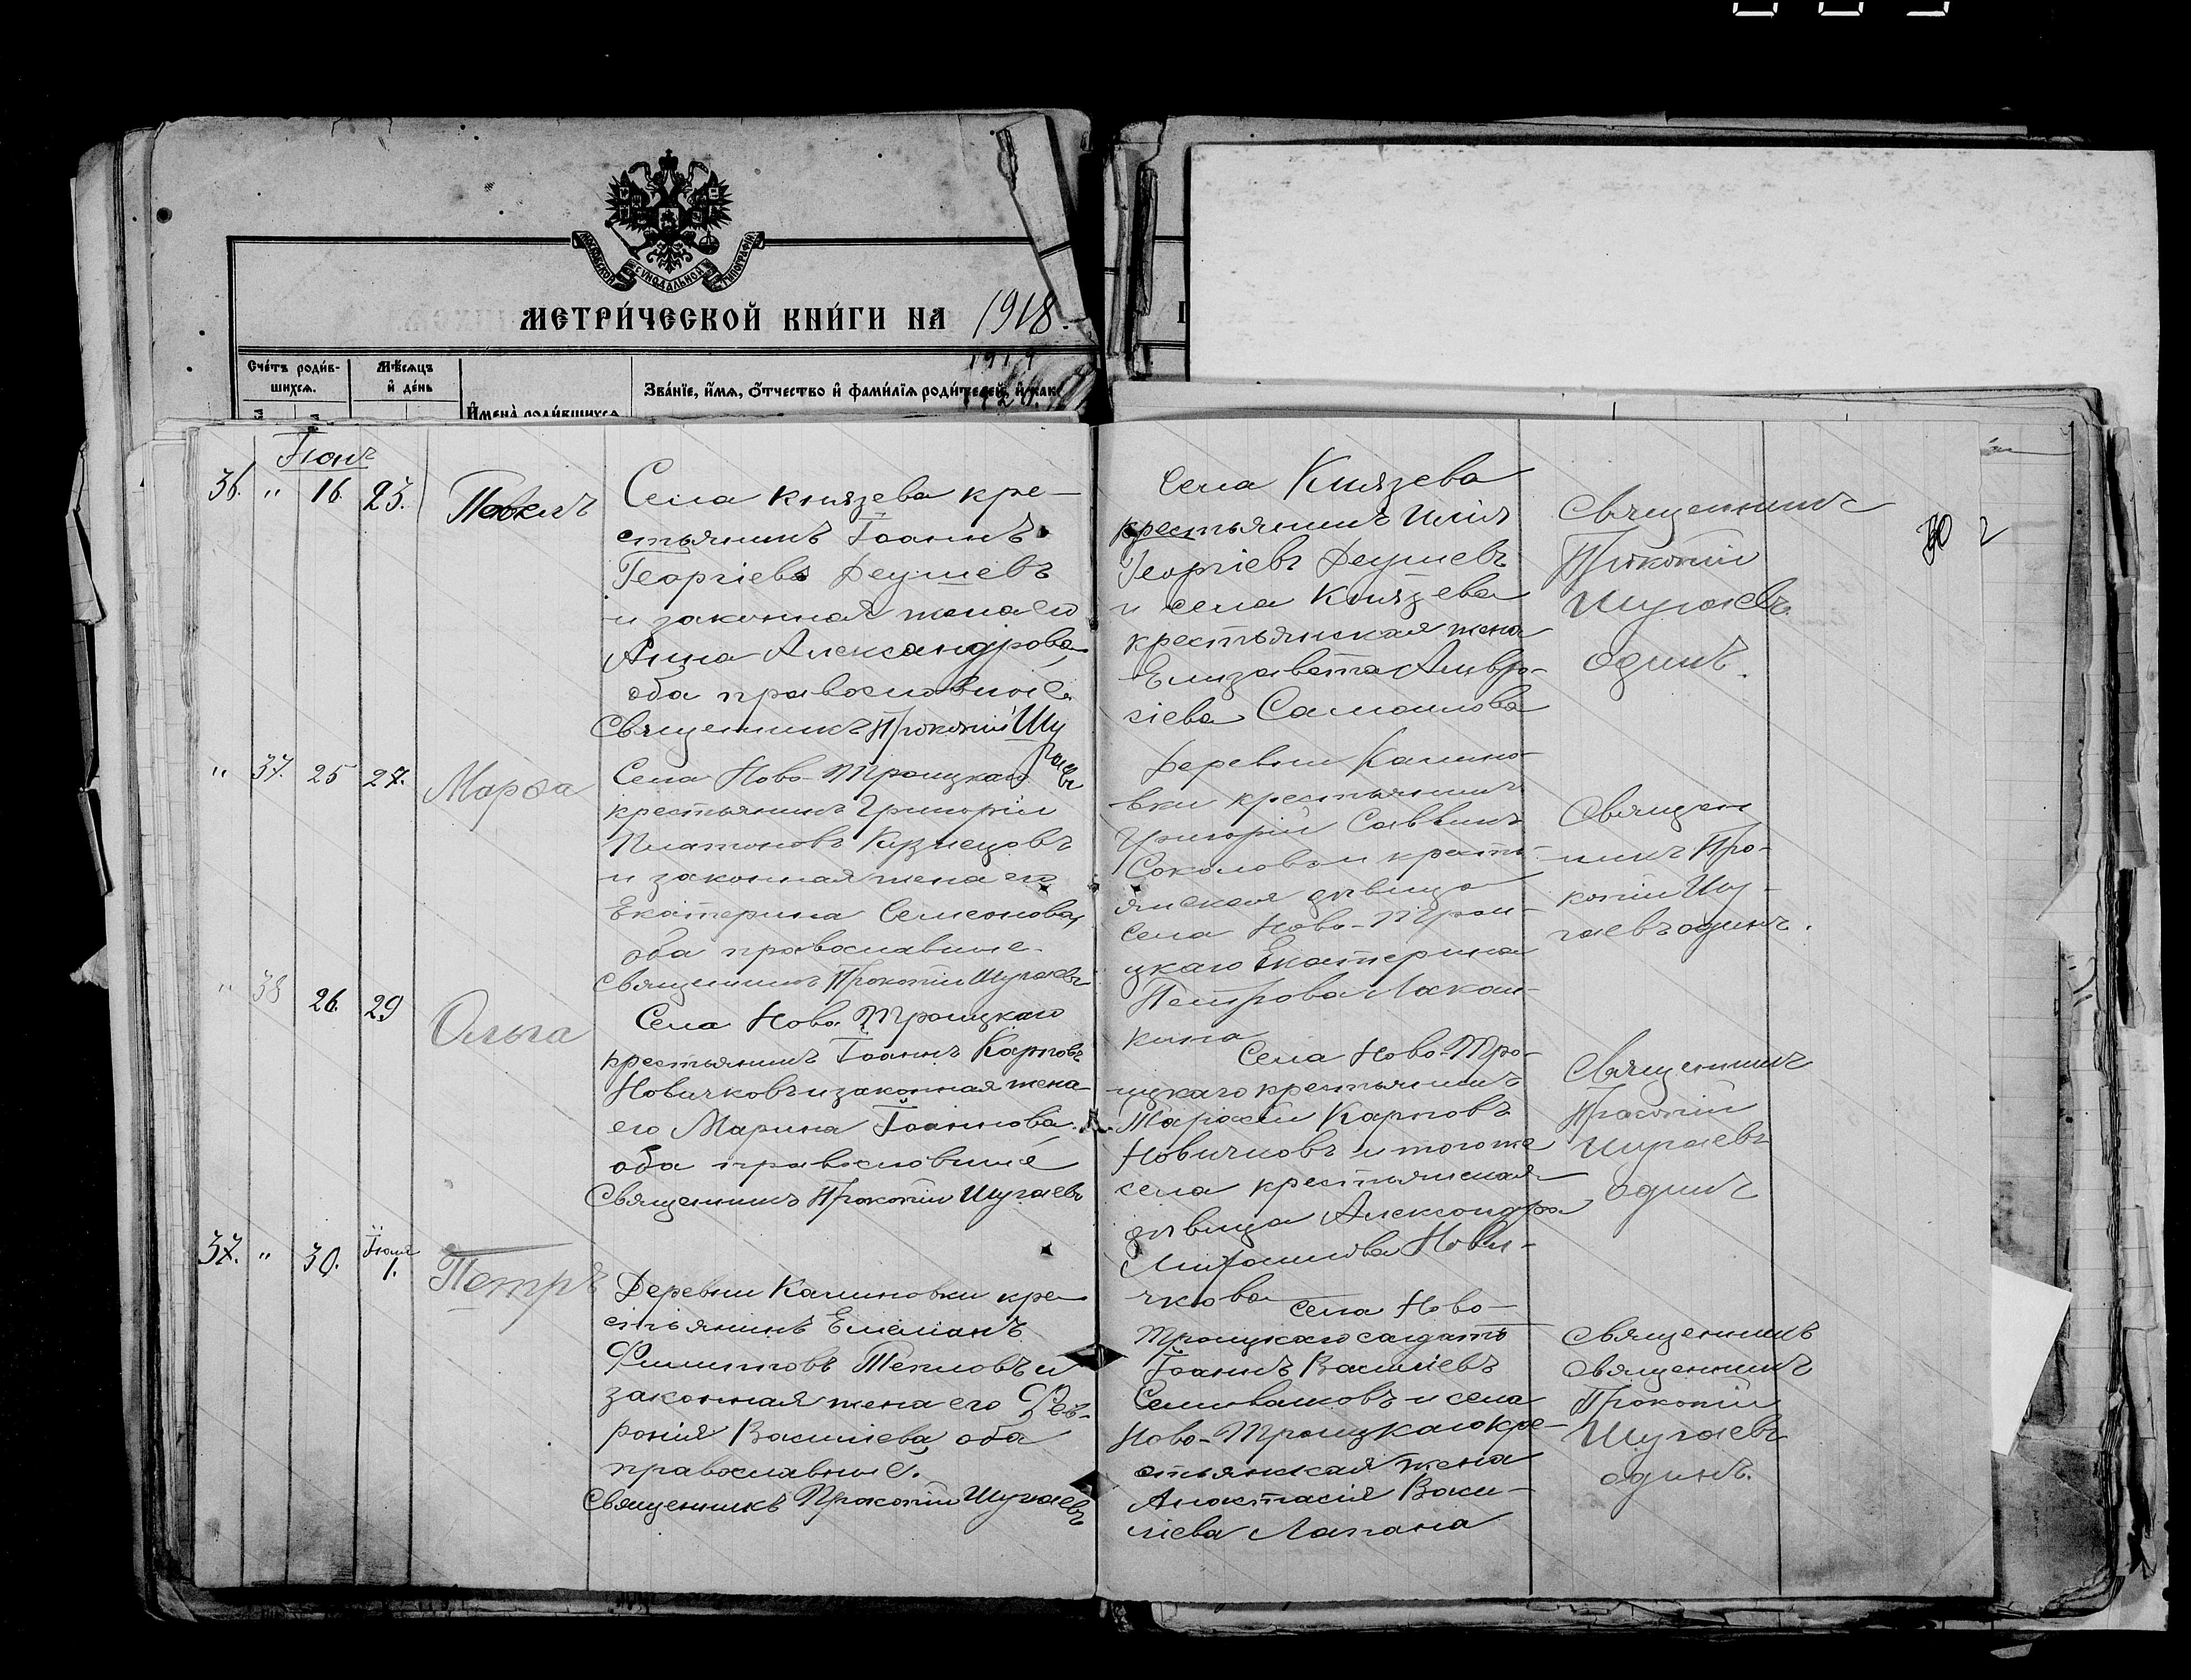 МОСКОВСКОЙ СУНОДАЛЬНОЙ ТИПОГРАФІИ
МЕТРИ́ЧЕСКОЙ КНИ́ГИ НА 1918.
1919
Счéтъ роди́в-
шихся.
Мѣ́сяцъ
и҆ де́нь
И҆мена̀ роди́вшихся
Зва́нїе, и҆́мя, ѻ҆́тчество и҆ фами́лїя роди́телей, и҆ как
Іюнь
36. " 16. 23. Павелъ
Села Князева кре-
стьянинъ Іоаннъ
Георгіевъ Деушевъ
и законная жена его
Анна Александрова,
оба православные.
Священникъ Прокопій Шу
гаевъ
Села Князева
крестьянинъ Илія
Георгіевъ Деушевъ
и села Князева
крестьянская жена
Елизавета Амвро-
сіева
Священникъ
Прокопій
Шугаевъ
одинъ.
30 2
" 37. 25 27. Марѳа
Села Ново-Троицкаго
крестьянинъ Григорій
Платоновъ Кузнецовъ
и законная жена его
Екатерина Семеонова,
оба православные.
Священникъ Прокопій Шугаевъ
Деревни Калино-
вки крестьянинъ
Григорій Саввинъ
Соколовъ и кресть-
янская дѣвица
села Ново-Трои-
цкаго Екатерина
Петрова
кина
Священ
никъ Про-
копій Шу-
гаевъ одинъ.
" 38 26. 29 Ольга
Села Ново-Троицкаго
крестьянинъ Іоаннъ Карповъ
Новичковъ и законная жена
его Марина Іоаннова,
оба православные
Священникъ Прокопій Шугаевъ
Села Ново-Тро-
ицкаго крестьянинъ
Тарасій Карповъ
Новичковъ и того же
села крестьянская
дѣвица Александра
Митрофанова Нови-
чкова
Священникъ
Прокопій
Шугаевъ
одинъ
37. " 30. Іюля 1. Петръ
Деревни Калиновки кре-
стьянинъ Емеліанъ
Филипповъ Тепловъ и
законная жена его Фев-
ронія Василіева, оба
православные.
Священникъ Прокопій Шугаевъ
села Ново-
Троицкаго солдатъ
Іоаннъ Василіевъ
Селивановъ и села
Ново-Троицкаго кре-
стьянская жена
Анастасія Васи-
ліева Лапана
Священникъ
Священникъ
Прокопій
Шугаевъ
одинъ.